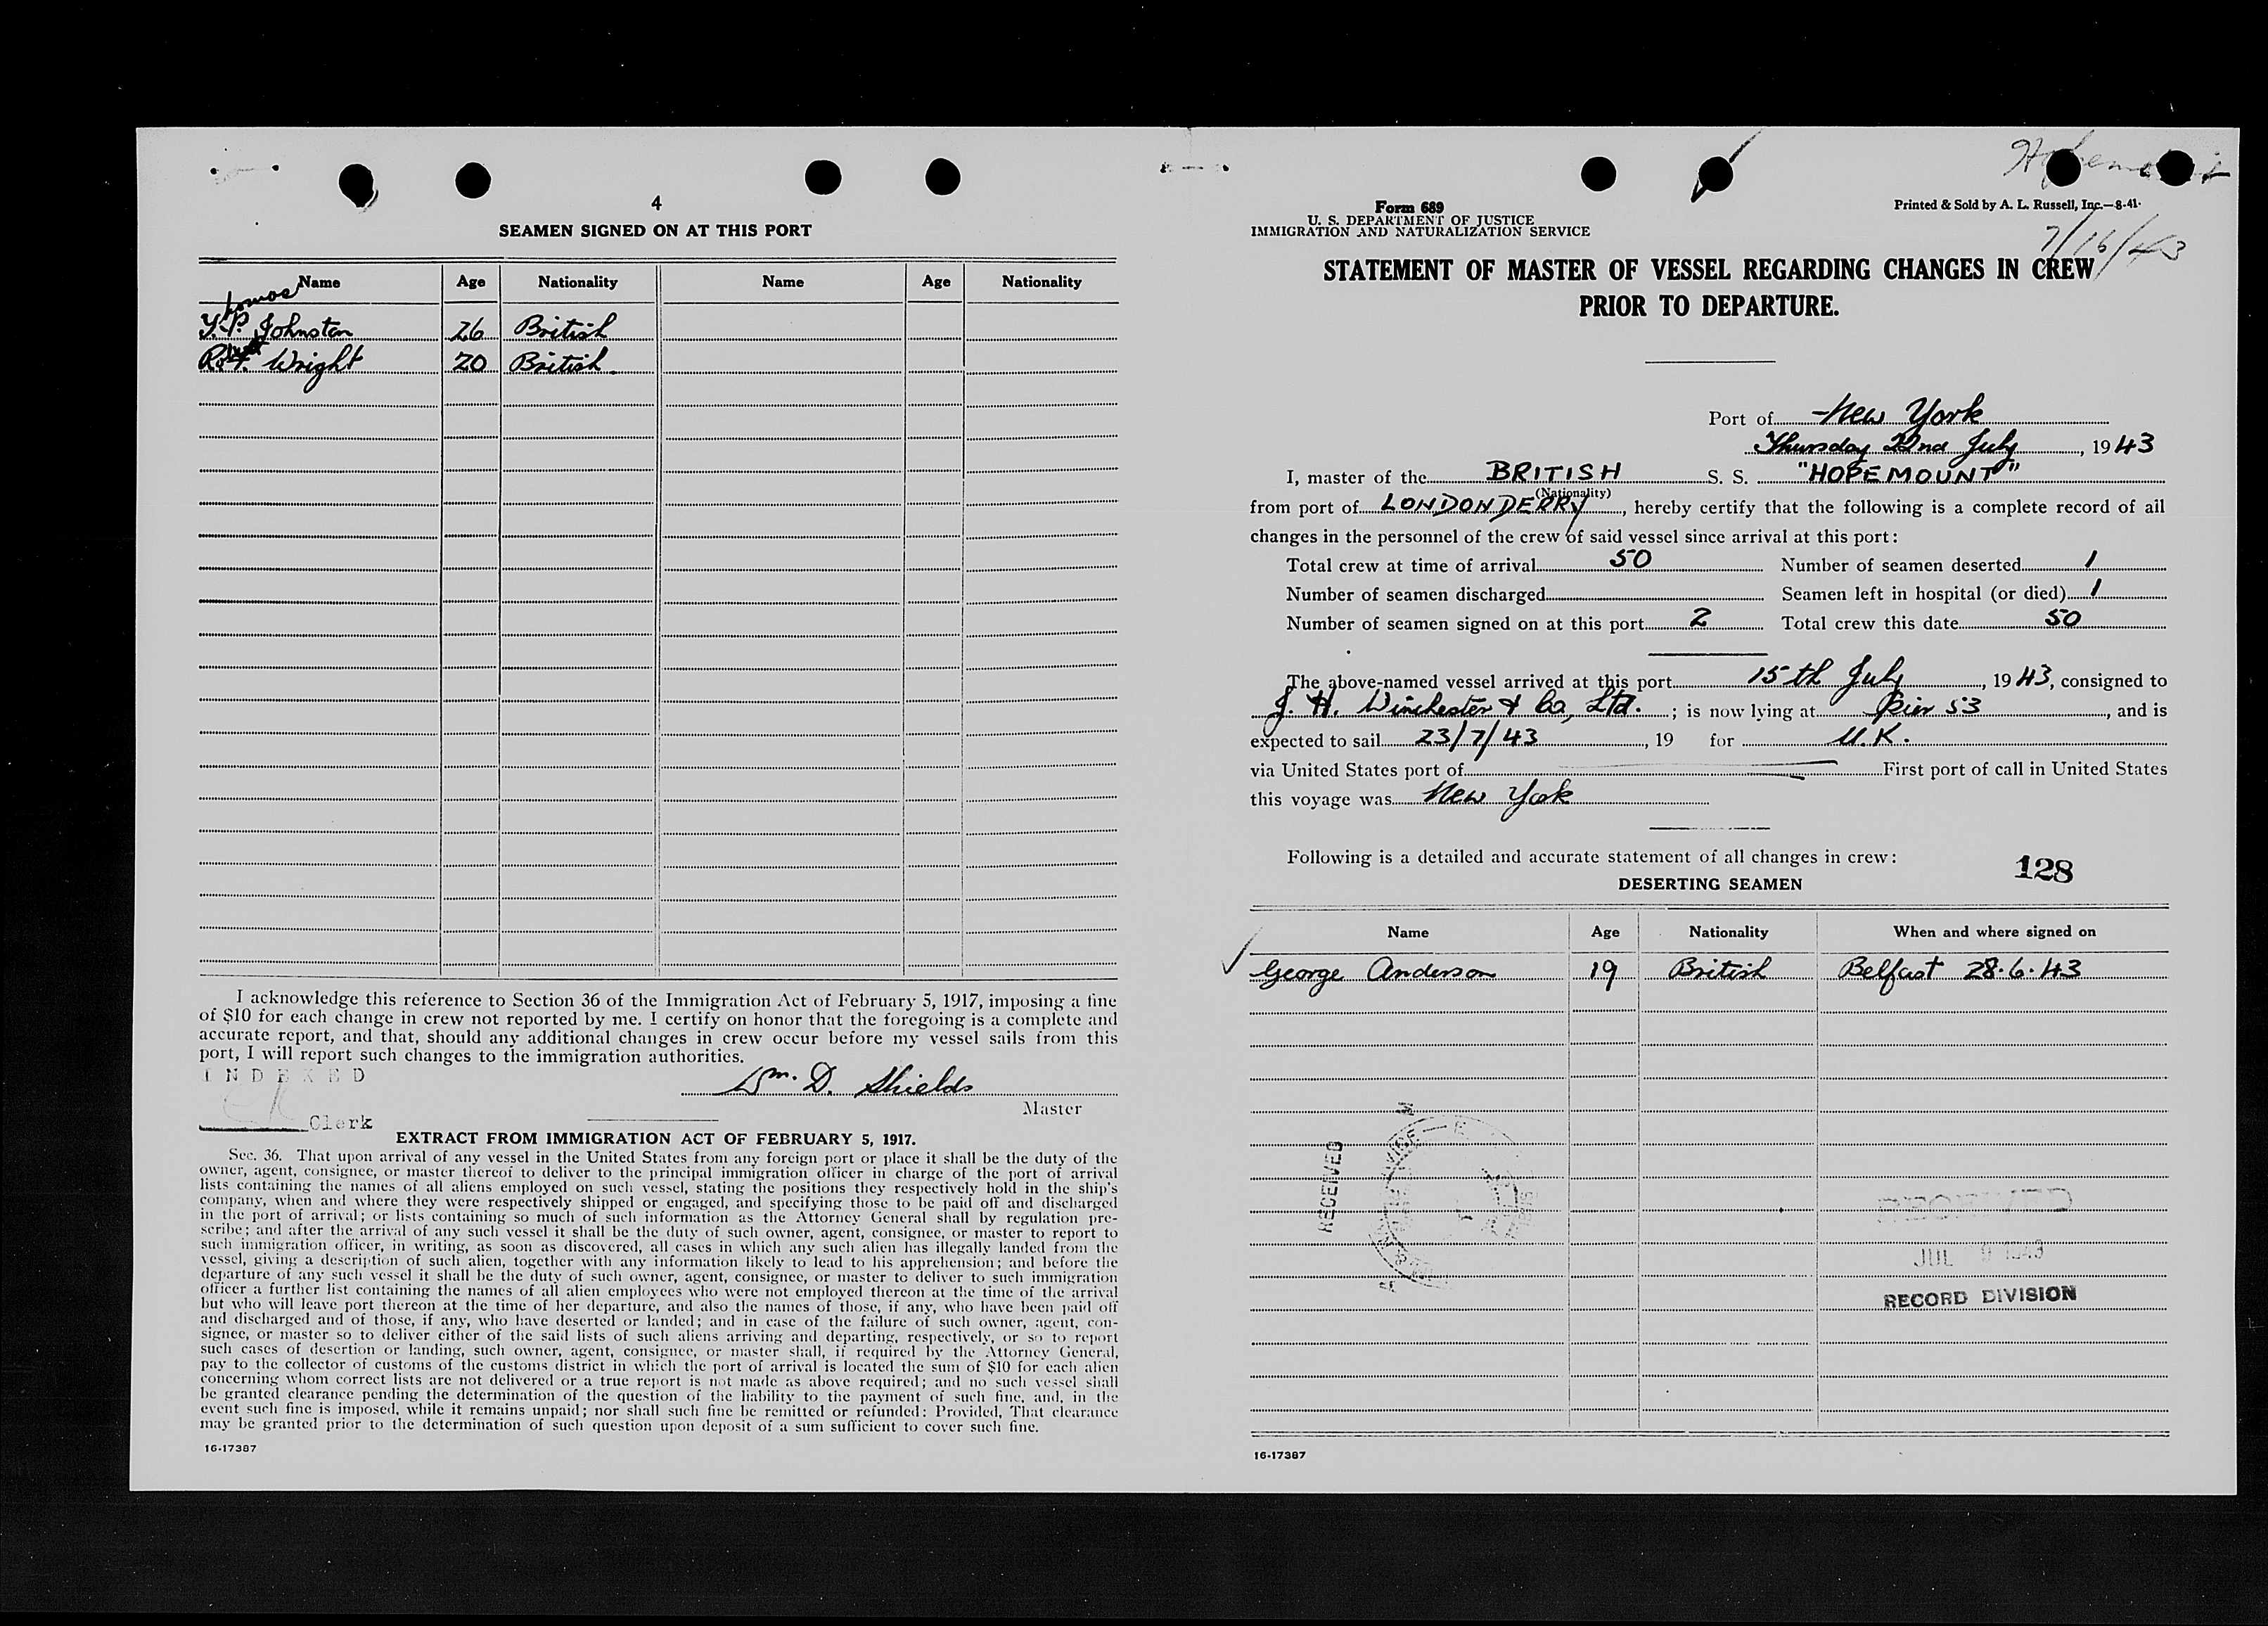 4
SEAMEN SIGNED ON AT THIS PORT
Name Age Nationality Name Age Nationality
T.P. Johnston 26 British
Robt. Wright 20 British
I acknowledge this reference to Section 36 of the Immigration Act of February 5, 1917, imposing a fine
of $10 for each change in crew not reported by me. I certify on honor that the foregoing is a complete and
accurate report, and that, should any additional changes in crew occur before my vessel sails from this
port, I will report such changes to the immigration authorities.
INDEXED
Wm. D. Shields
Master
Clerk
EXTRACT FROM IMMIGRATION ACT OF FEBRUARY 5, 1917.
Sec. 36. That upon arrival of any vessel in the United States from any foreign port or place it shall be the duty of the
owner, agent, consignee, or master thereof to deliver to the principal immigration officer in charge of the port of arrival
lists containing the names of all aliens employed on such vessel, stating the positions they respectively hold in the ship's
company, when and where they were respectively shipped or engaged, and specifying those to be paid off and discharged
in the port of arrival; or lists containing so much of such information as the Attorney General shall by regulation pre-
scribe; and after the arrival of any such vessel it shall be the duty of such owner, agent, consignee, or master to report to
such immigration officer, in writing, as soon as discovered, all cases in which any such alien has illegally landed from the
vessel, giving a description of such alien, together with any information likely to lead to his apprehension; and before the
departure of any such vessel it shall be the duty of such owner, agent, consignee, or master to deliver to such immigration
officer a further list containing the names of all alien employees who were not employed thereon at the time of the arrival
but who will leave port thereon at the time of her departure, and also the names of those, if any, who have been paid off
and discharged and of those, if any, who have deserted or landed; and in case of the failure of such owner, agent, con-
signee, or master so to deliver either of the said lists of such aliens arriving and departing, respectively, or so to report
such cases of desertion or landing, such owner, agent, consignee, or master shall, if required by the Attorney General,
pay to the collector of customs of the customs district in which the port of arrival is located the sum of $10 for each alien
concerning whom correct lists are not delivered or a true report is not made as above required; and no such vessel shall
be granted clearance pending the determination of the question of the liability to the payment of such fine, and, in the
event such fine is imposed, while it remains unpaid; nor shall such fine be remitted or refunded: Provided, That clearance
may be granted prior to the determination of such question upon deposit of a sum sufficient to cover such fine.
16-17387
Form 689
U. S. DEPARTMENT OF JUSTICE
IMMIGRATION AND NATURALIZATION SERVICE
Printed & Sold by A. L. Russell, Inc.—8-41-
7/16/43
STATEMENT OF MASTER OF VESSEL REGARDING CHANGES IN CREW
PRIOR TO DEPARTURE.
Port of New York
Thursday 22nd July, 1943
I, master of the BRITISH S. S. "HOPEMOUNT"
(Nationality)
from port of LONDONDERRY, hereby certify that the following is a complete record of all
changes in the personnel of the crew of said vessel since arrival at this port:
Total crew at time of arrival 50 Number of seamen deserted 1
Number of seamen discharged Seamen left in hospital (or died) 1
Number of seamen signed on at this port 2 Total crew this date 50
The above-named vessel arrived at this port 15th July, 1943, consigned to
J. H. Winchester & Co, Ltd. ; is now lying at Pier 53, and is
expected to sail 23/7/43, 19 for U.K.
via United States port of First port of call in United States
this voyage was New York
Following is a detailed and accurate statement of all changes in crew:
128
DESERTING SEAMEN
Name Age Nationality When and where signed on
George Anderson 19 British Belfast 28.6.43
RECEIVED
RECEIVED
JUL 1943
RECORD DIVISION
16-17387